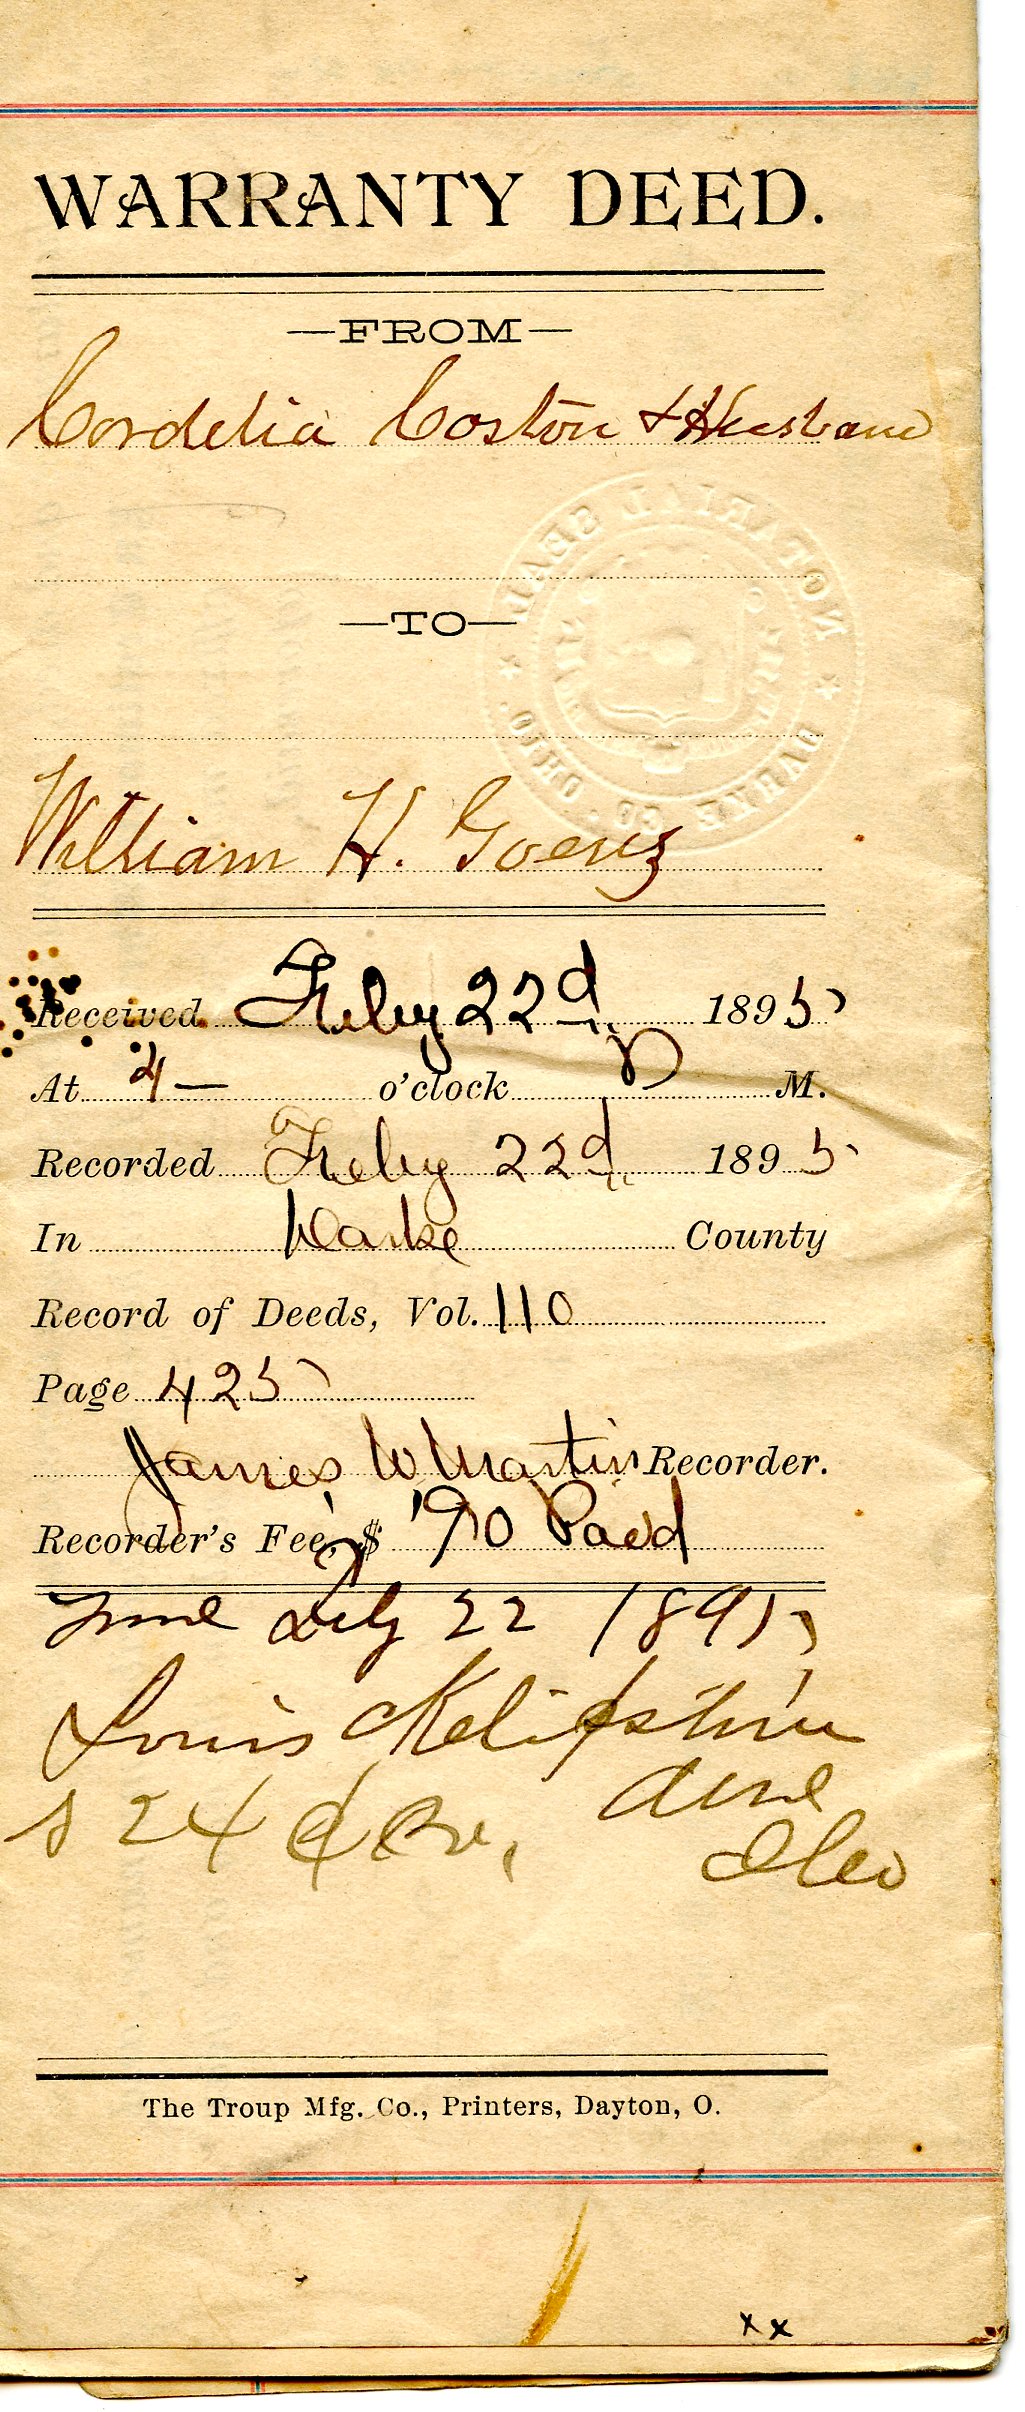 WARRANTY DEED.
—FROM—
Cordelia Coston & Husband
NOTARIAL SEAL
—TO—
DARKE CO. OHIO.
William H. Goenz
Received Feby 22d 1895
At 4 — o'clock P M.
Recorded Feby 22d 1895
In Darke County
Record of Deeds, Vol. 110
Page 425
James W Martin Recorder.
Recorder's Fee, $ .90 Paid
22 1895
Louis
$ 24
The Troup Mfg. Co., Printers, Dayton, O.
x x